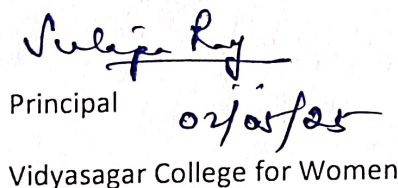 Ray
Principal
02/05/25
Vidyasagar College for Women